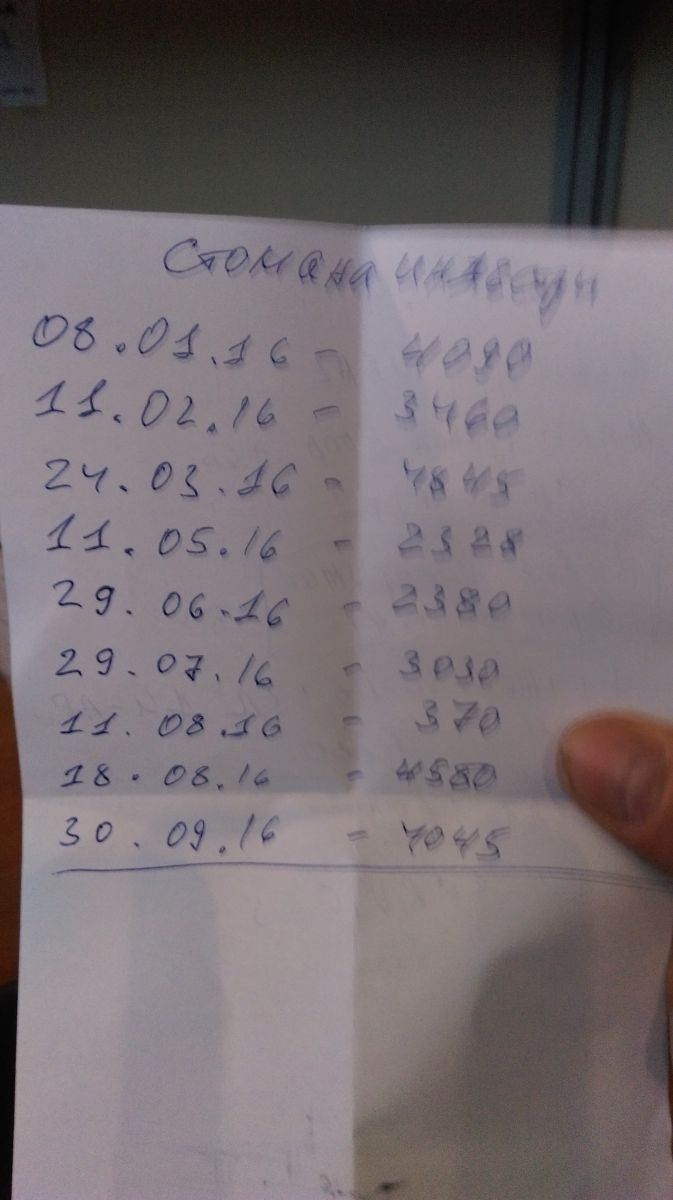 Стомана
08.01.16 - 4090
11.02.16 - 3460
24.03.16 - 4845
11.05.16 - 2328
29.06.16 - 2380
29.07.16 - 3030
11.08.16 - 370
18.08.16 - 4580
30.09.16 - 4045